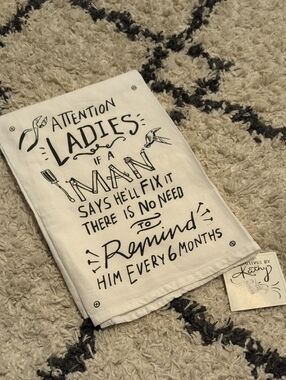 ATTENTION
LADIES
IF A
MAN
SAYS HE'LL FIX IT
THERE IS NO NEED
TO
Remind
HIM EVERY 6 MONTHS
BY
Kathy